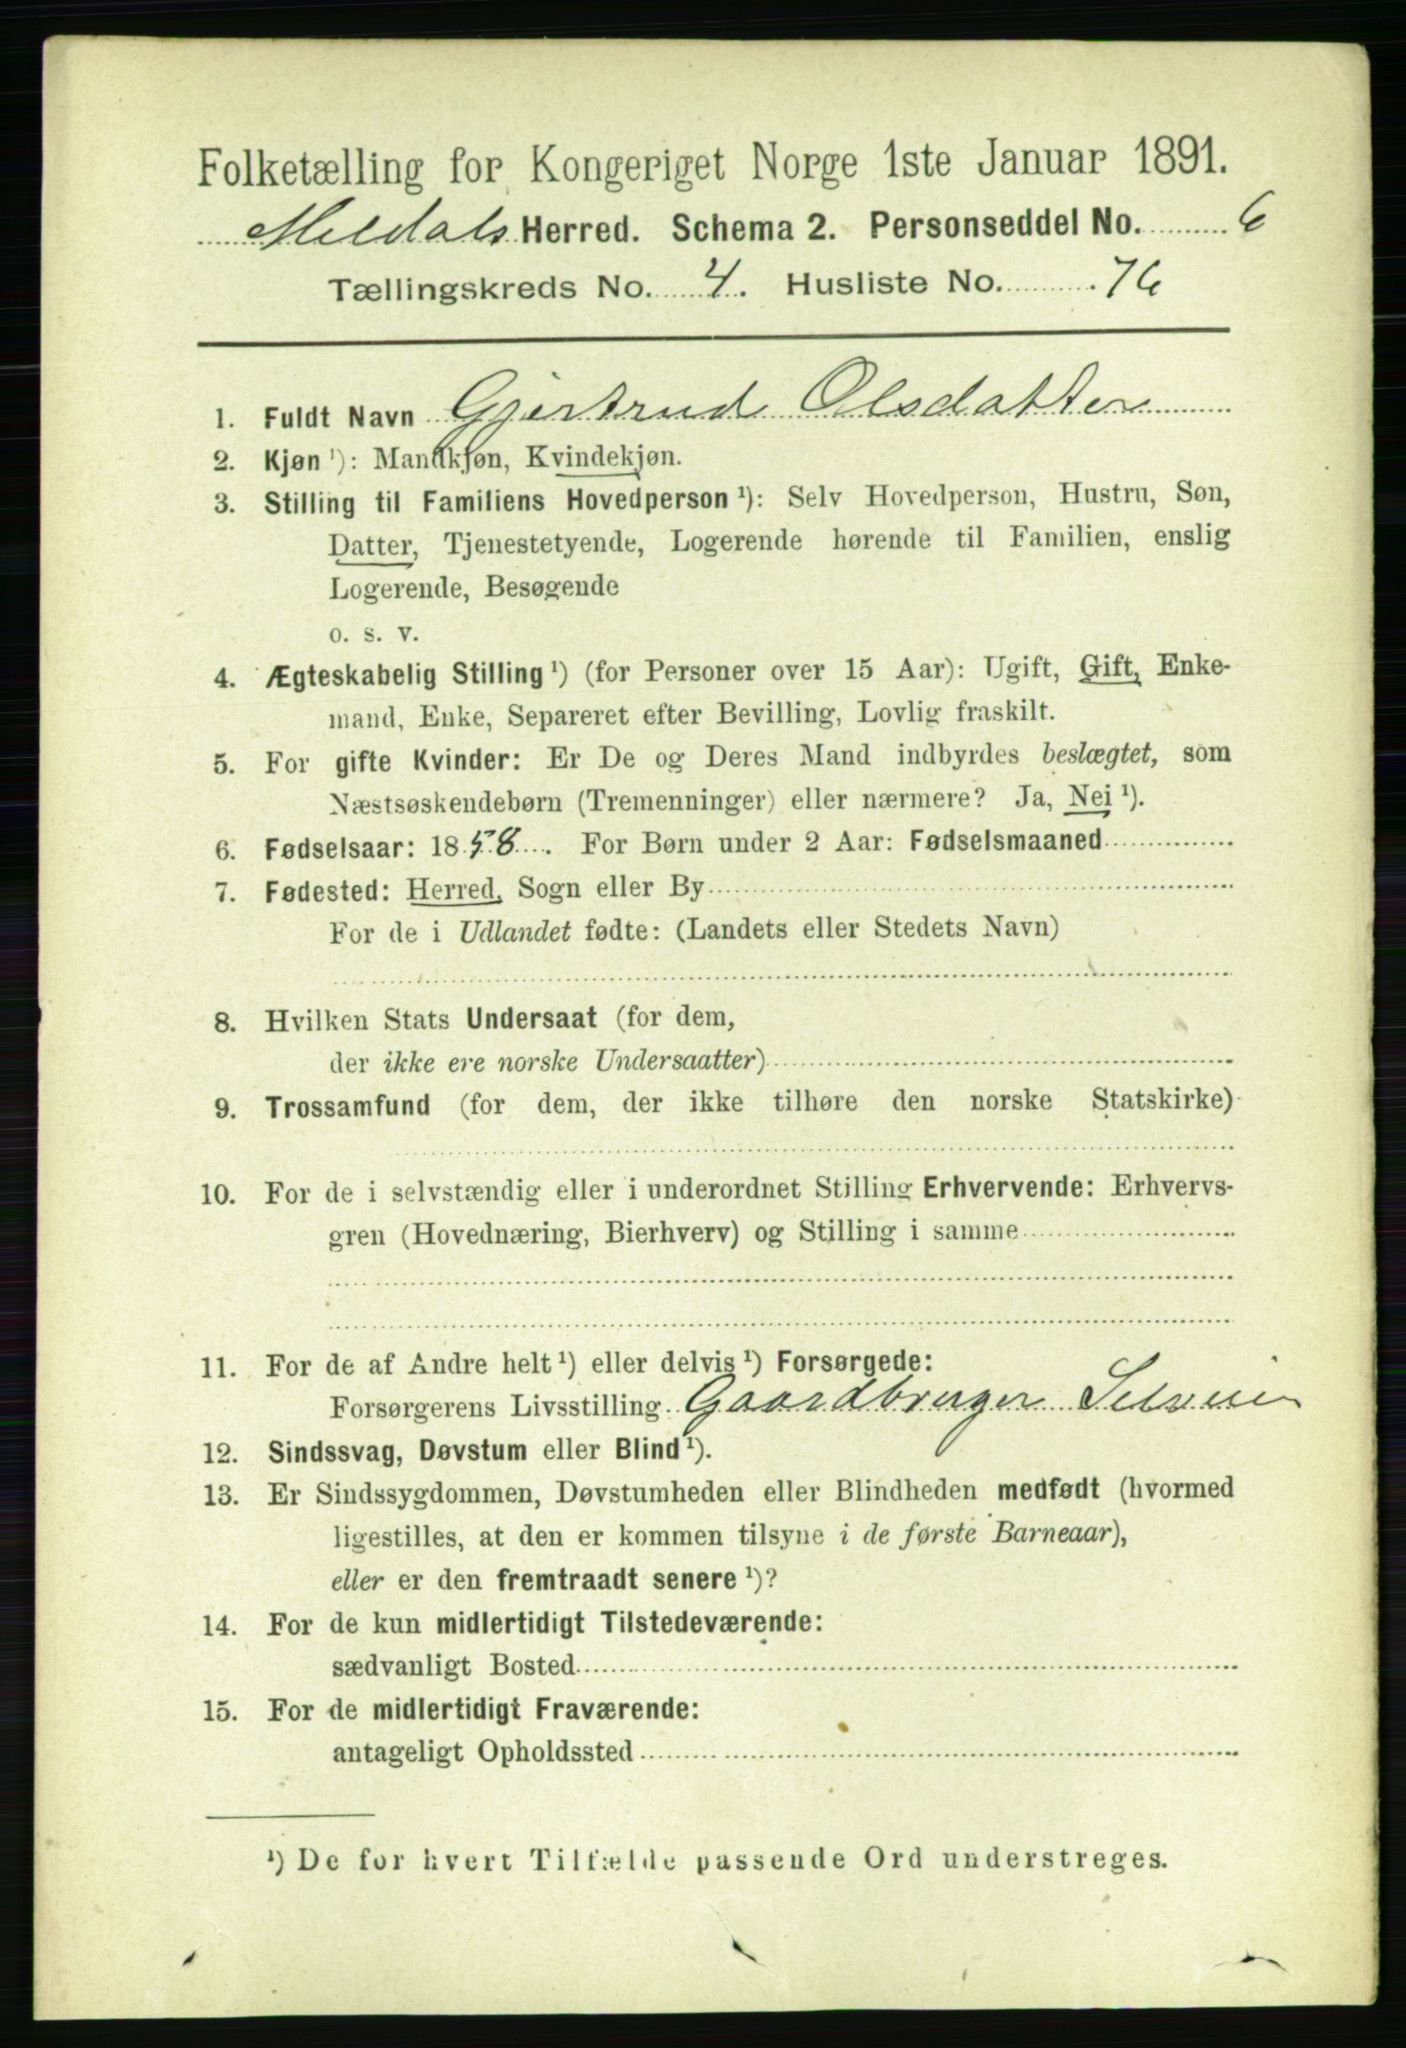 Folketælling for Kongeriget Norge 1ste Januar 1891.
Meldals Herred. Schema 2. Personseddel No. 6
Tællingskreds No. 4. Husliste No. 76
1. Fuldt Navn Gjertrud Olsdatter
2. Kjøn ¹): Mandkjøn, Kvindekjøn.
3. Stilling til Familiens Hovedperson ¹): Selv Hovedperson, Hustru, Søn,
Datter, Tjenestetyende, Logerende hørende til Familien, enslig
Logerende, Besøgende
o. s. v.
4. Ægteskabelig Stilling ¹) (for Personer over 15 Aar): Ugift, Gift, Enke-
mand, Enke, Separeret efter Bevilling, Lovlig fraskilt.
5. For gifte Kvinder: Er De og Deres Mand indbyrdes beslægtet, som
Næstsøskendebørn (Tremenninger) eller nærmere? Ja, Nei ¹).
6. Fødselsaar: 1858. For Børn under 2 Aar: Fødselsmaaned
7. Fødested: Herred, Sogn eller By
For de i Udlandet fødte: (Landets eller Stedets Navn)
8. Hvilken Stats Undersaat (for dem,
der ikke ere norske Undersaatter)
9. Trossamfund (for dem, der ikke tilhøre den norske Statskirke)
10. For de i selvstændig eller i underordnet Stilling Erhvervende: Erhvervs-
gren (Hovednæring, Bierhverv) og Stilling i samme
11. For de af Andre helt ¹) eller delvis ¹) Forsørgede:
Forsørgerens Livsstilling Gaardbruger
12. Sindssvag, Døvstum eller Blind ¹).
13. Er Sindssygdommen, Døvstumheden eller Blindheden medfødt (hvormed
ligestilles, at den er kommen tilsyne i de første Barneaar),
eller er den fremtraadt senere ¹)?
14. For de kun midlertidigt Tilstedeværende:
sædvanligt Bosted
15. For de midlertidigt Fraværende:
antageligt Opholdssted
¹) De for hvert Tilfælde passende Ord understreges.